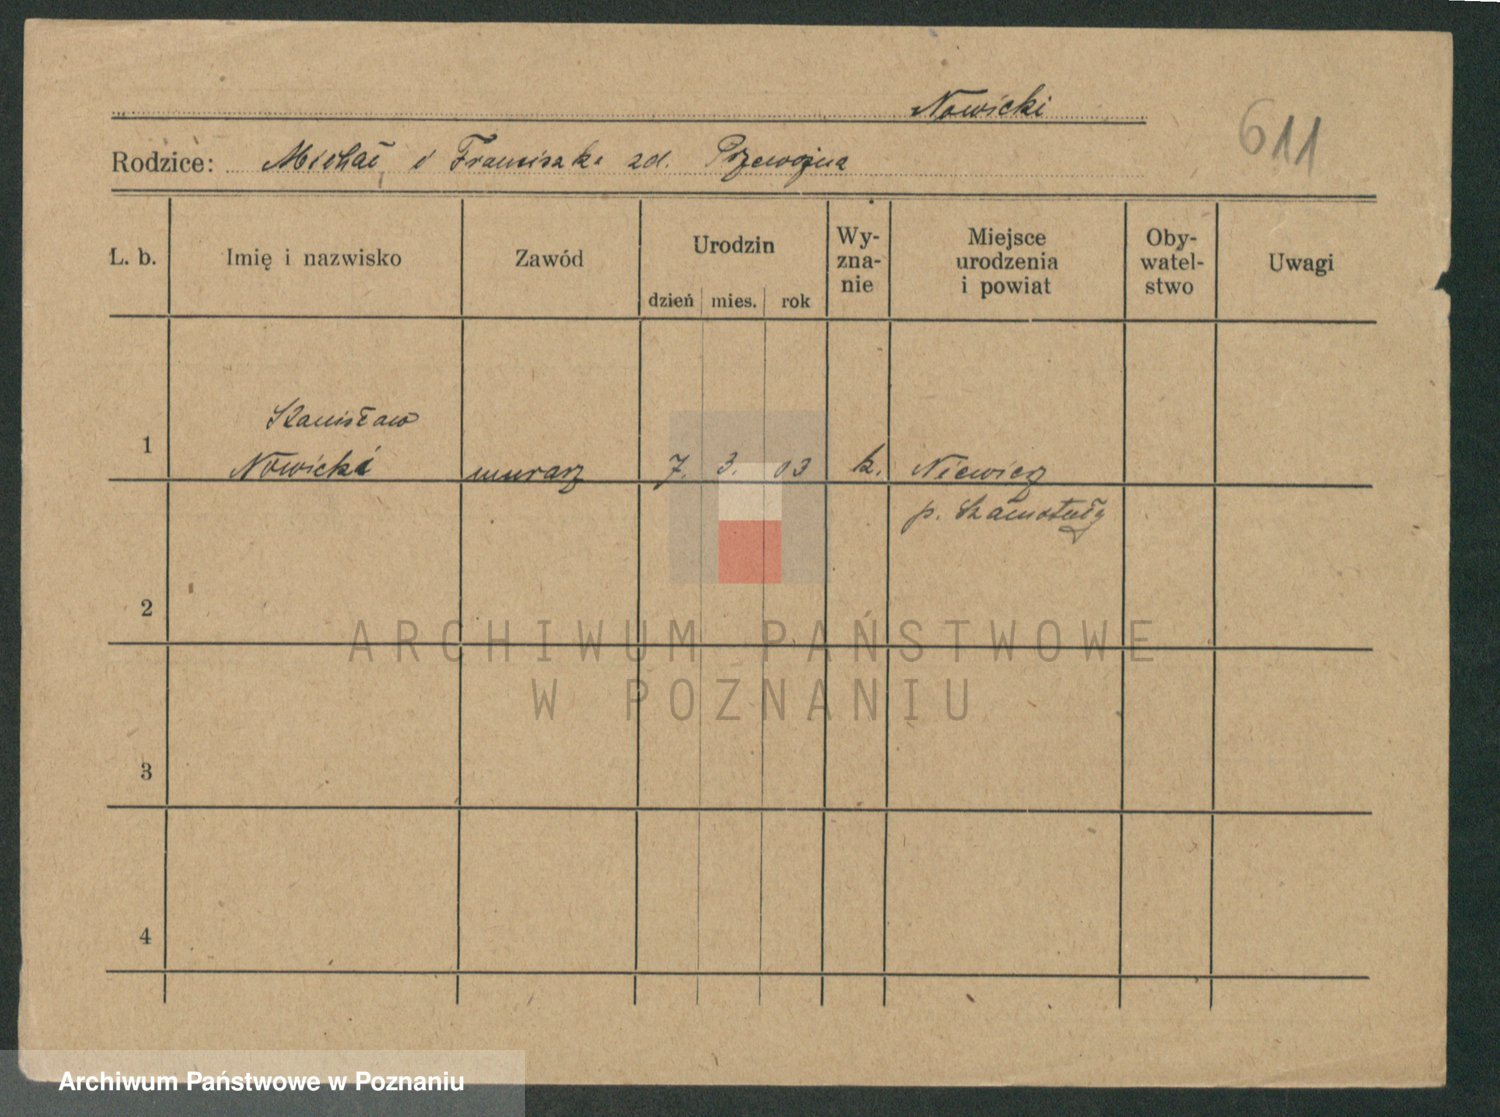 Nowicki
611
Rodzice: Michał i Franciszka zd. Przewoźna
L. b. Imię i nazwisko Zawód Urodzin dzień mies. rok Wy-zna-nie Miejsce urodzenia i powiat Oby-watel-stwo Uwagi
Stanisław
1 Nowicki murarz 7. 3. 03 k. Niewierz
p. Szamotuły
2
ARCHIWUM PAŃSTWOWE
W POZNANIU
3
4
Archiwum Państwowe w Poznaniu